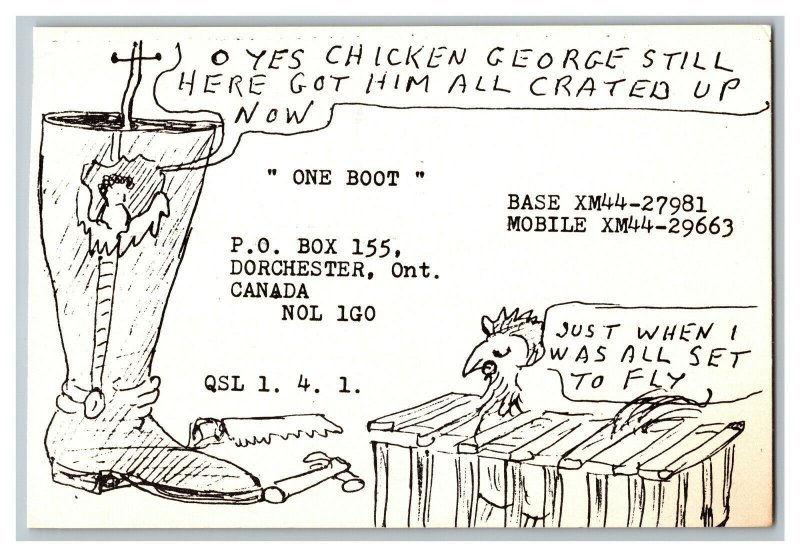 O YES CHICKEN GEORGE STILL
HERE GOT HIM ALL CRATED UP
NOW
" ONE BOOT "
BASE XM44-27981
MOBILE XM44-29663
P.O. BOX 155,
DORCHESTER, Ont.
CANADA
NOL 1GO
QSL 1. 4. 1.
JUST WHEN I
WAS ALL SET
TO FLY